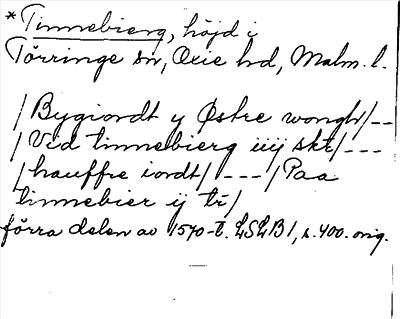 *Tinnebierg, höjd i
Törringe sn, Oxie hd, Malm. l.
/Bygiordt y Østre wongh/--
/Vid tinnebierg iiij skr/---
/hauffre iordt/ ---/Paa
tinnebier ij tr/
förra delen av 1570-t. LSLB1, s. 400. orig.